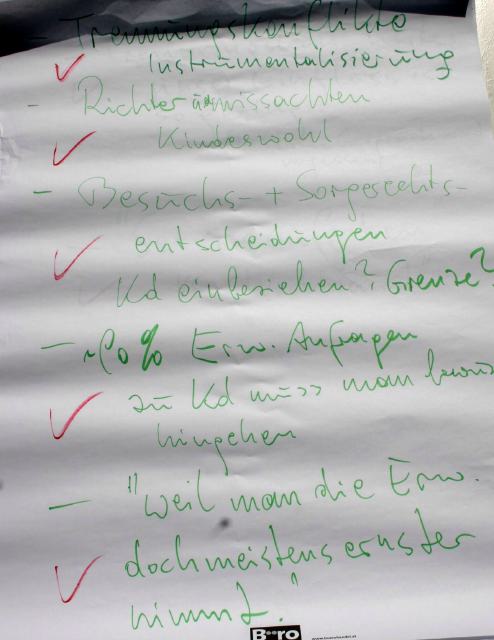 - Trennungskonflikte
Instrumentalisierung
- Richter missachten
Kindeswohl
- Besuchs- + Sorgerechts-
entscheidungen
Kd einbeziehen? Grenze?
- 90% Erw. Anfragen
zu Kd muss man
hingehen
- "weil man die Erw.
doch meistens ernster
nimmt."
Büro